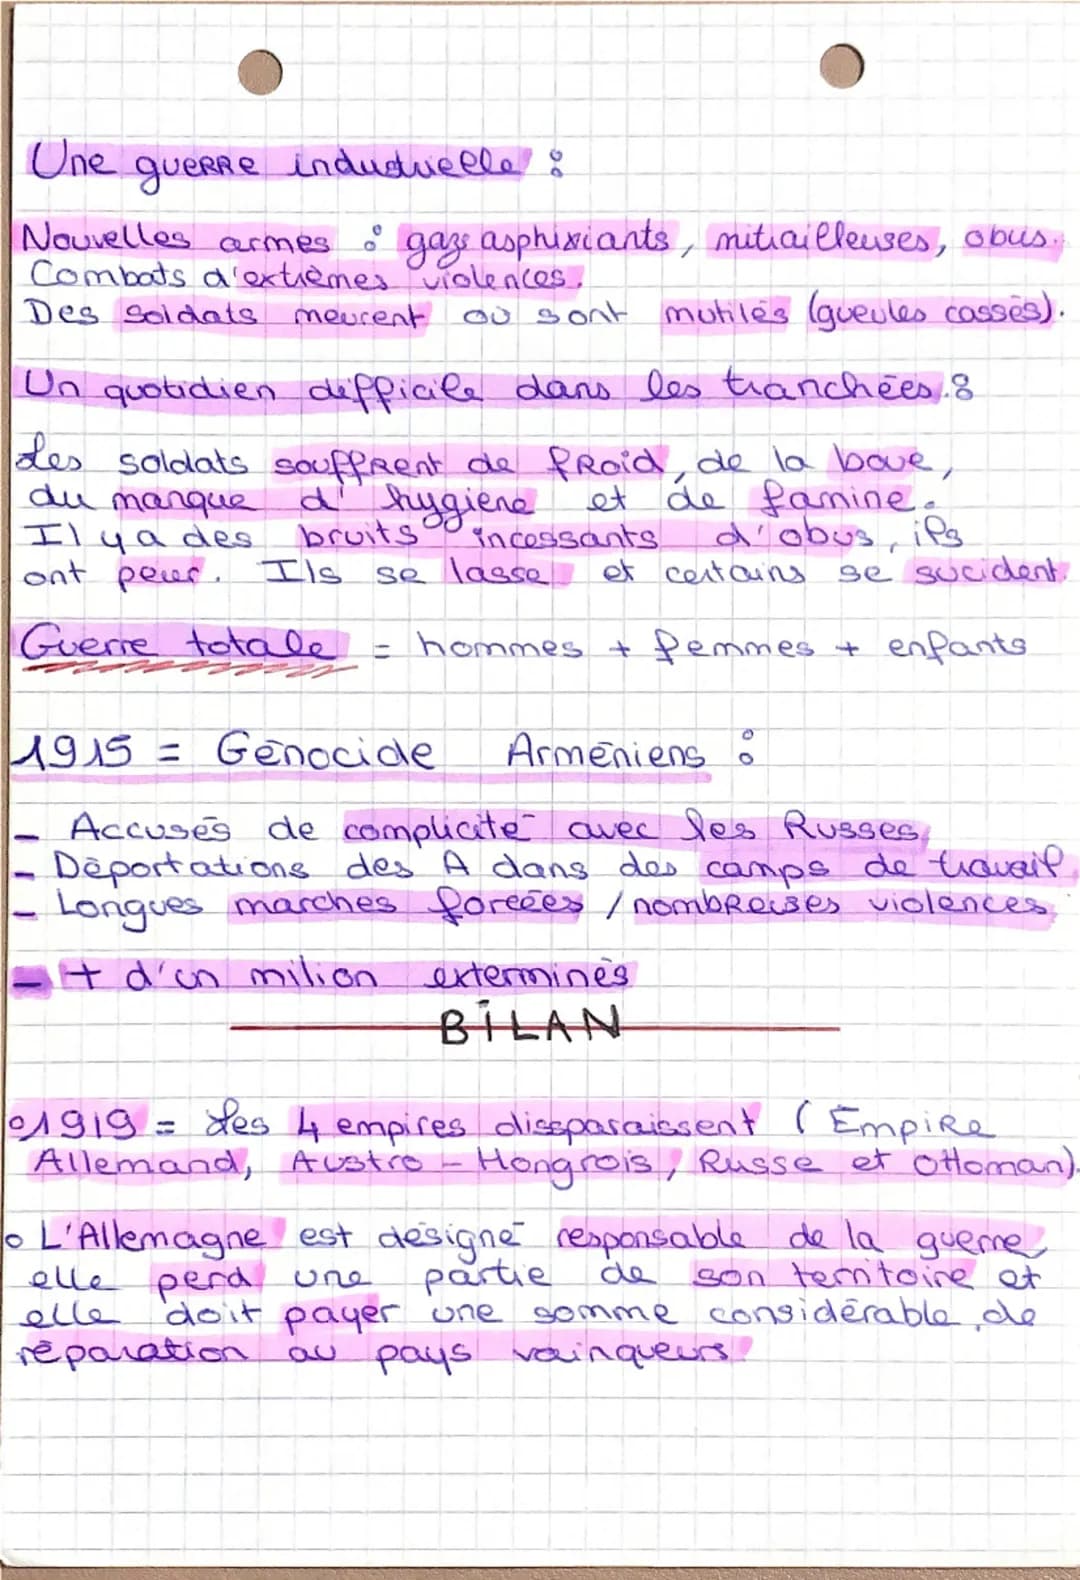 Une guerre industrielle :
Nouvelles armes : gazs asphixiants, mitrailleuses, obus.
Combats d'extrêmes violences.
Des soldats meurent où sont mutilés (gueules cassés).
Un quotidien difficile dans les tranchées :
Les soldats souffrent de froid, de la boue,
du manque d'hygiène et de famine.
Il y a des bruits incessants d'obus, ils
ont peur. Ils se lasse et certains se sucident.
Guerre totale = hommes + femmes + enfants
1915 = Génocide Arméniens :
- Accusés de complicité avec les Russes
- Déportations des A dans des camps de travail
- Longues marches forcées / nombreuses violences
- + d'un milion exterminés
BILAN
1919 = Les 4 empires dissparaissent (Empire
Allemand, Austro-Hongrois, Russe et Ottoman).
L'Allemagne est désigné responsable de la guerre,
elle perd une partie de son territoire et
elle doit payer une somme considérable de
réparation au pays vainqueurs.